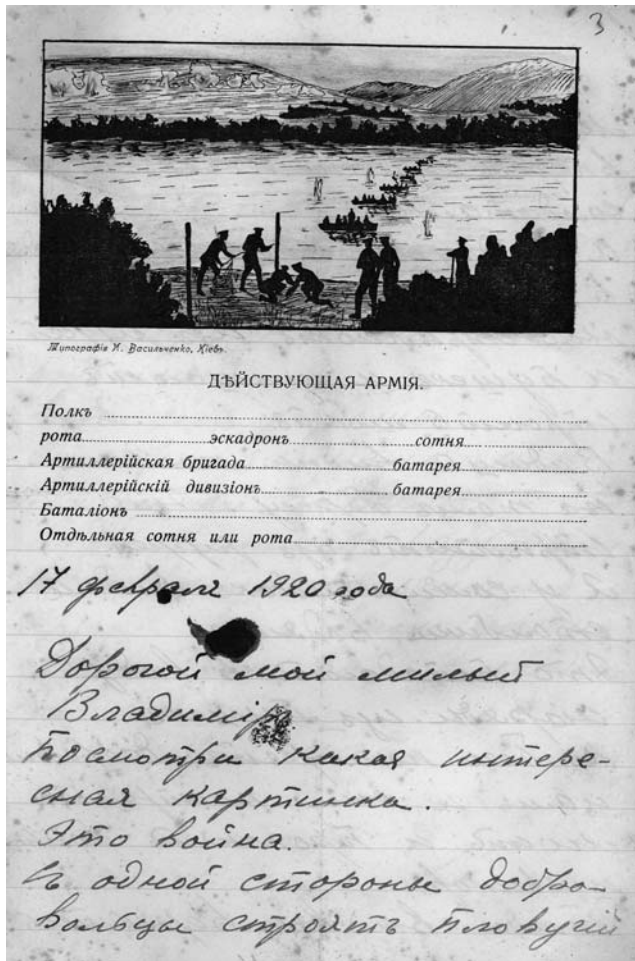 3
Типографія И. Васильченко, Кіевъ.
ДѢЙСТВУЮЩАЯ АРМІЯ.
Полкъ
рота эскадронъ сотня
Артиллерійская бригада батарея
Артиллерійскій дивизіонъ батарея
Баталіонъ
Отдѣльная сотня или рота
17 февраля 1920 года
Дорогой мой милый
Владиміръ
посмотри какая интере-
сная картинка.
Это война.
Съ одной стороны добро-
вольцы строятъ пловучій